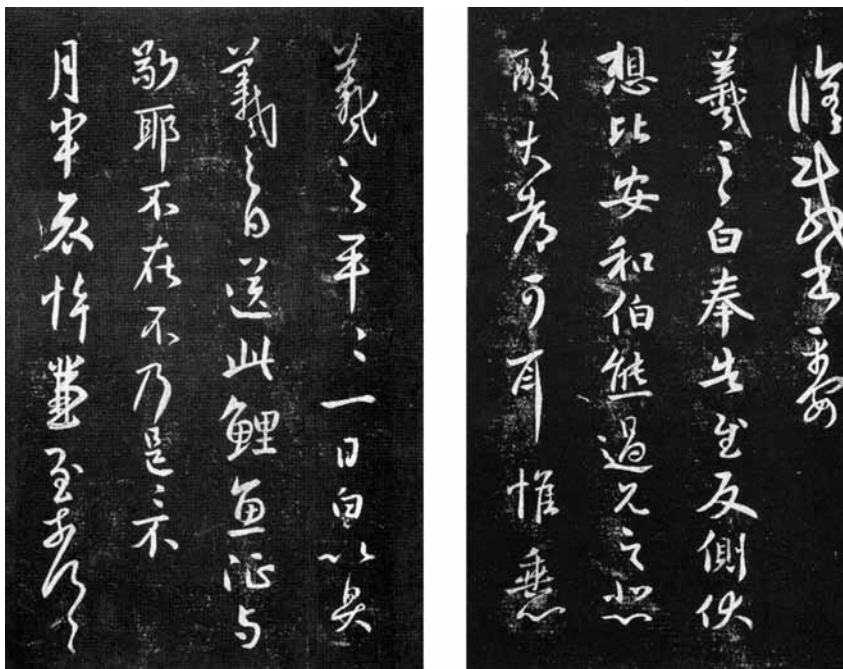 羲之白奉告慰反側伏
想比安和伯熊過見之悲
酸大都可耳惟垂
羲之平〻一日白以具
羲之白送此鯉魚征与
敬耶不在不乃是〻不
月半哀悼兼至奈何〻